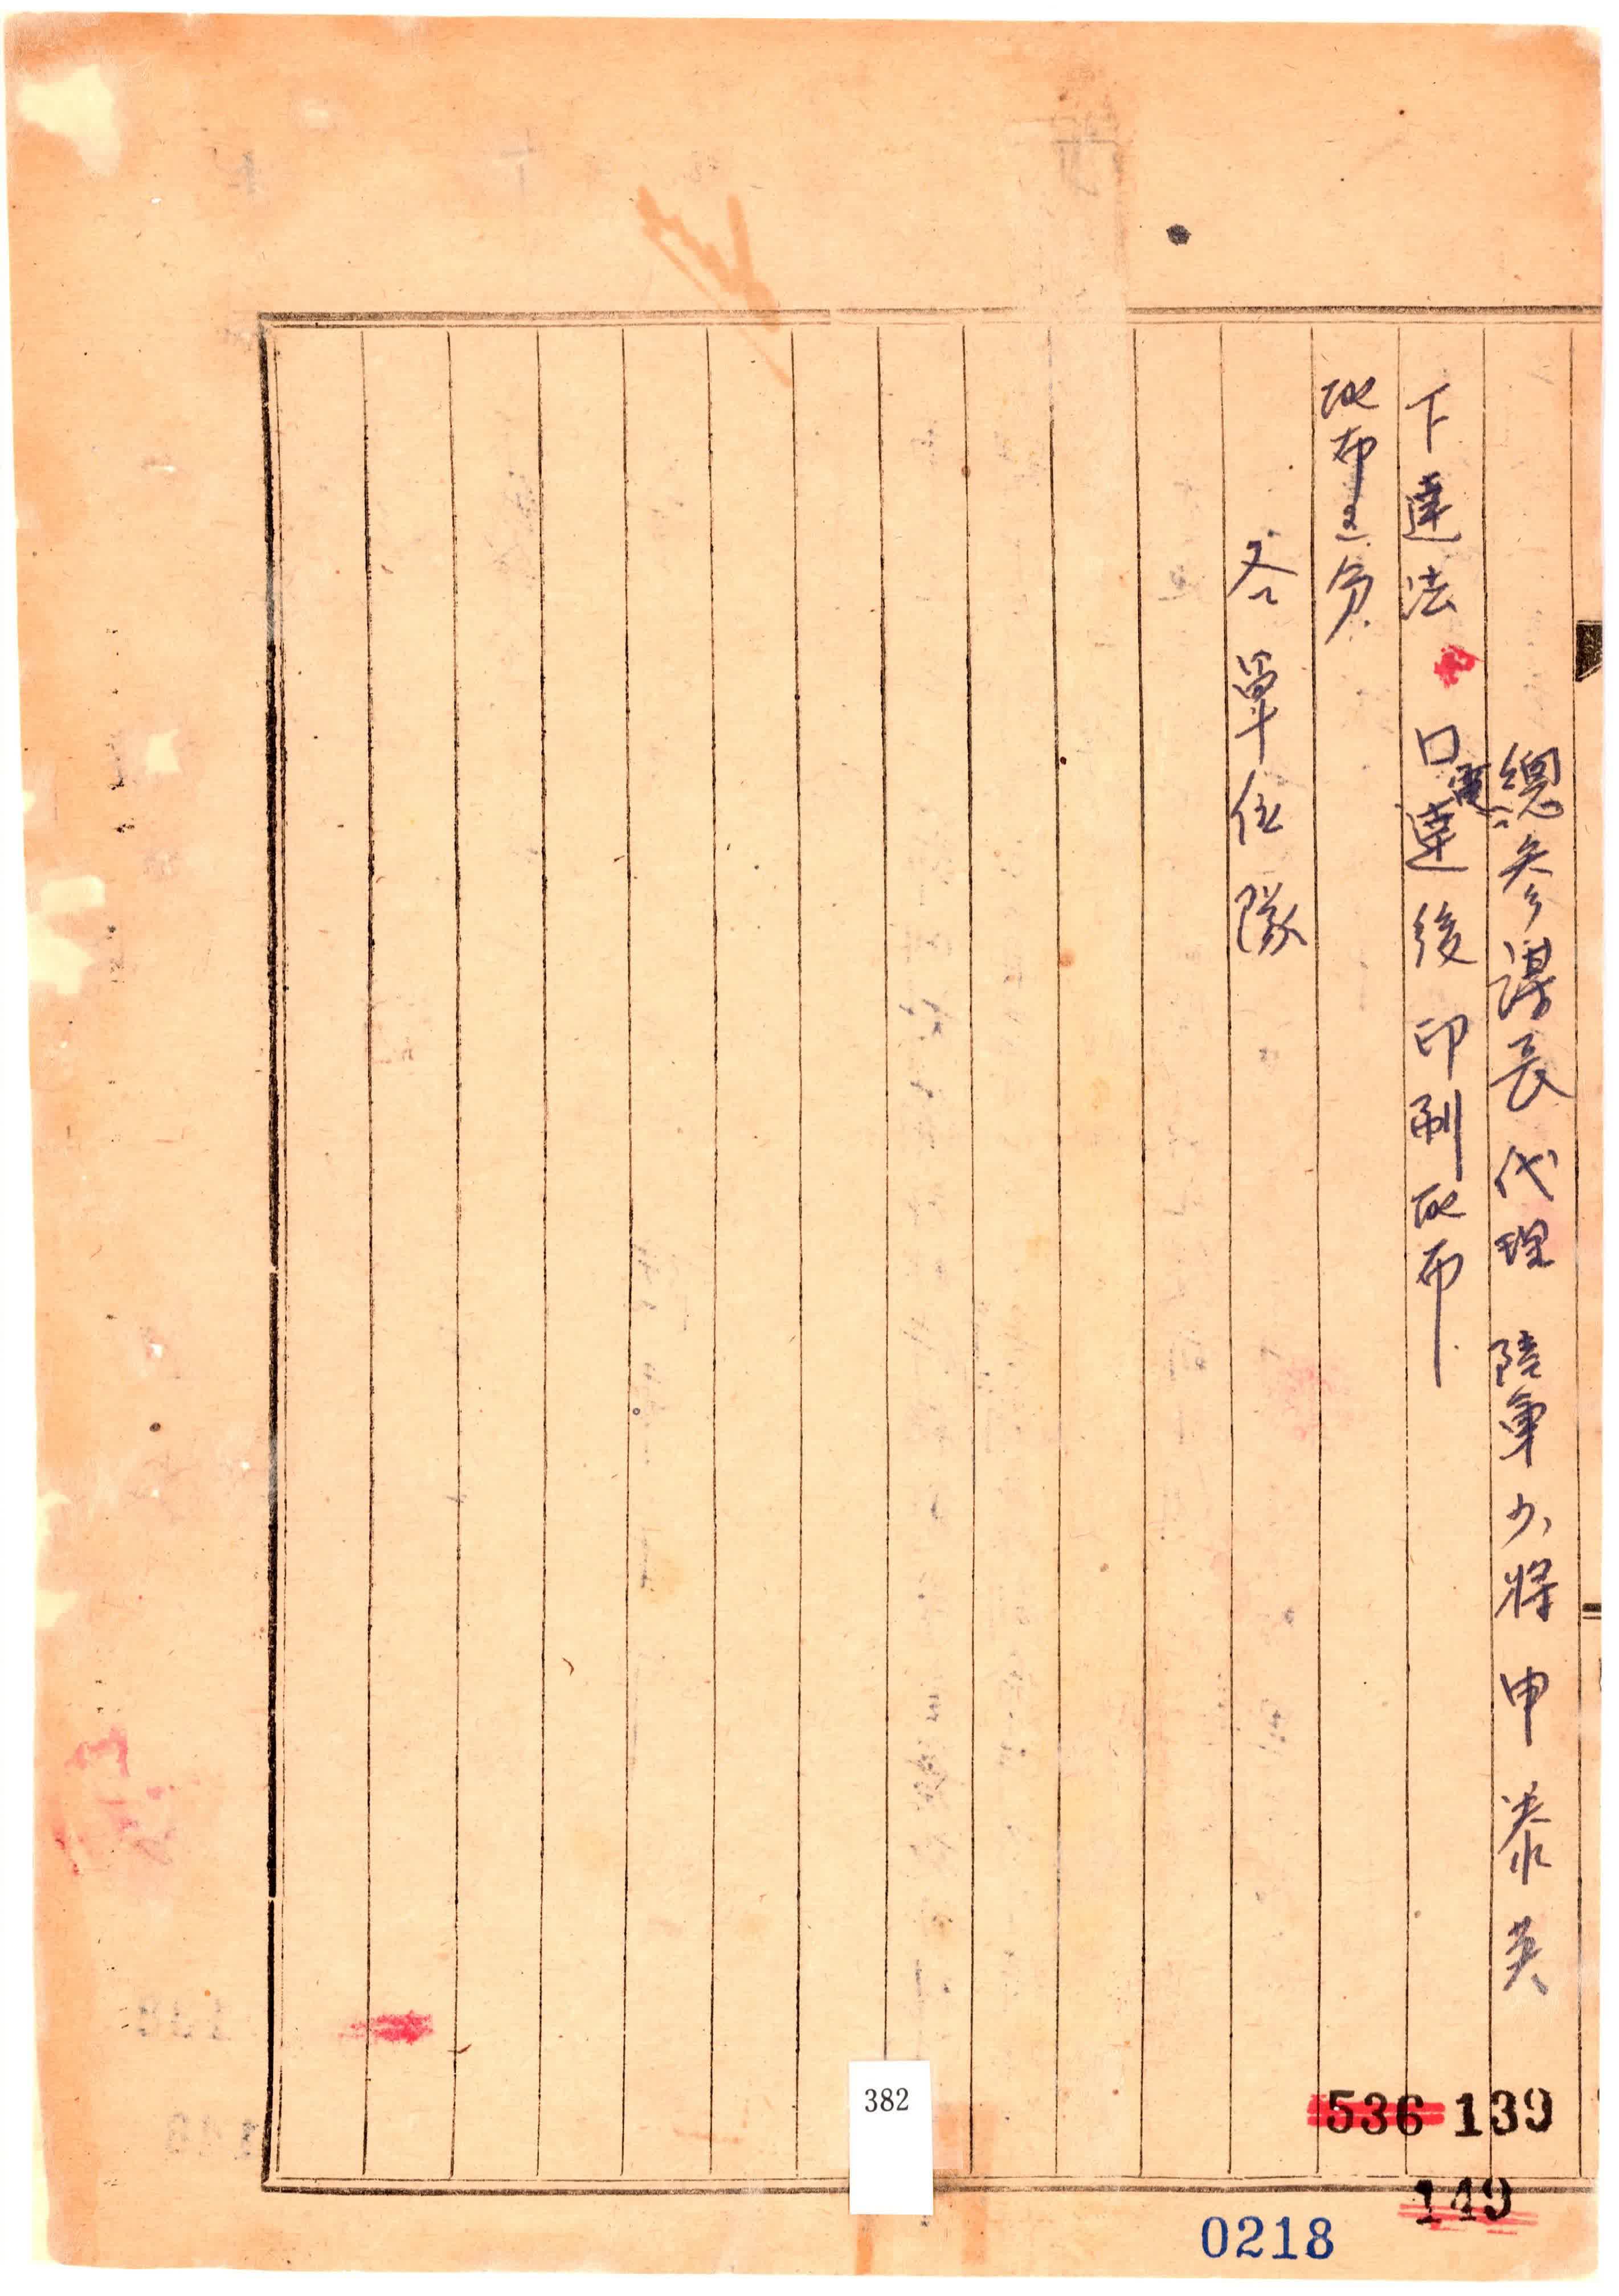 總參謀長代理 陸軍少將 申泰英
下達法 口達後 印刷 配布
電
配布區分
各單位隊
536 139
149
382
0218